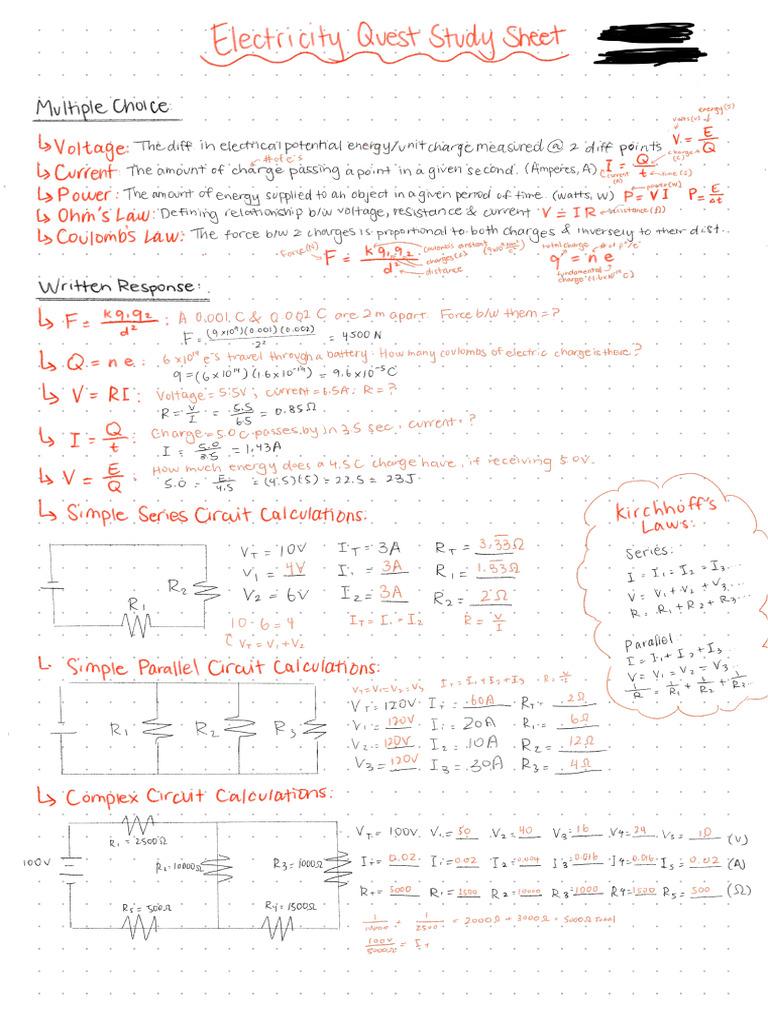 Electricity Quest Study Sheet
Multiple Choice:
↳ Voltage: The diff in electrical potential energy/unit charge measured @ 2 diff points V = E/Q
volts(v) energy(J) charge(C)
↳ Current: The amount of charge passing a point in a given second. (Amperes, A) I = Q/t
# of e's current (A) charge (C) time(s)
↳ Power: The amount of energy supplied to an object in a given period of time. (watts, w) P = VI P = E/Δt
power(w)
↳ Ohm's Law: Defining relationship b/w voltage, resistance & current V = IR
resistance(Ω)
↳ Coulomb's Law: The force b/w 2 charges is proportional to both charges & inversely to their dist.
Force(N) F = kq₁q₂/d² coulomb's constant charges(c) distance
total charge q = ne # of e fundamental charge
Written Response:
↳ F = kq₁q₂/d² : A 0.001C & 0.002 C are 2m apart. Force b/w them = ?
F = (9×10⁹)(0.001)(0.002)/2² = 4500N
↳ Q = ne: 6×10¹⁴ e's travel through a battery. How many coulombs of electric charge is there?
q = (6×10¹⁴)(1.6×10⁻¹⁹) = 9.6×10⁻⁵C
↳ V = RI: Voltage = 5.5V, current = 6.5A. R = ?
R = V/I = 5.5/6.5 = 0.85Ω
↳ I = Q/t : Charge = 5.0C passes by in 3.5 sec, current = ?
I = 5.0/3.5 = 1.43A
↳ V = E/Q : How much energy does a 4.5C charge have, if receiving 5.0V.
5.0 = E/4.5 = (4.5)(5) = 22.5 = 23J
↳ Simple Series Circuit Calculations:
R₁ R₂
V_T = 10V I_T = 3A R_T = 3.33Ω
V₁ = 4V I₁ = 3A R₁ = 1.33Ω
V₂ = 6V I₂ = 3A R₂ = 2Ω
10-6=4 I_T = I₁ = I₂ R = V/I
V_T = V₁+V₂
Kirchhoff's Laws:
Series:
I = I₁ = I₂ = I₃...
V = V₁ + V₂ + V₃...
R = R₁ + R₂ + R₃...
Parallel
I = I₁ + I₂ + I₃...
V = V₁ = V₂ = V₃...
1/R = 1/R₁ + 1/R₂ + 1/R₃...
↳ Simple Parallel Circuit Calculations:
R₁ R₂ R₃
V_T=V₁=V₂=V₃ I_T = I₁+I₂+I₃ R = V/I
V_T = 120V I_T = 60A R_T = 2Ω
V₁ = 120V I₁ = 20A R₁ = 6Ω
V₂ = 120V I₂ = 10A R₂ = 12Ω
V₃ = 120V I₃ = 30A R₃ = 4Ω
↳ Complex Circuit Calculations:
100V
R₁ = 2500Ω
R₂ = 10000Ω
R₃ = 1000Ω
R₅ = 500Ω
R₄ = 1500Ω
V_T = 100V V₁ = 50 V₂ = 40 V₃ = 16 V₄ = 24 V₅ = 10 (V)
I_T = 0.02 I₁ = 0.02 I₂ = 0.004 I₃ = 0.016 I₄ = 0.016 I₅ = 0.02 (A)
R_T = 5000 R₁ = 1500 R₂ = 10000 R₃ = 1000 R₄ = 1500 R₅ = 500 (Ω)
1/10000 + 1/2500 = 2000Ω + 3000Ω = 5000Ω total
100V/5000Ω = I_T